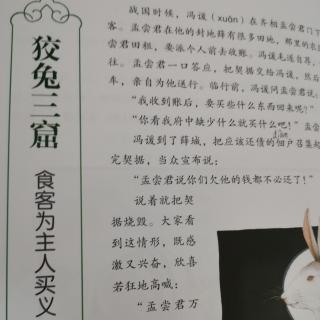 狡兔三窟
食客为主人买义
战国时候，冯谖（xuān）在齐相孟尝君门下
客。孟尝君在他的封地薛有很多田地，那里的农
尝君田租，要派个人前去收账。冯谖毛遂自荐，
往。孟尝君一口答应，把契据交给冯谖，然后
车，亲自为他送行。临行前，冯谖问孟尝君说：
“我收到账后，要买些什么东西回来呢？”
“你看我府中缺少什么就买什么吧！”孟
冯谖到了薛城，把应该还债的佃户召集起
完契据，当众宣布说：
“孟尝君说你们欠他的钱都不必还了！”
说着就把契
据烧毁。大家看
到这情形，既感
激又兴奋，欣喜
若狂地高喊：
“孟尝君万